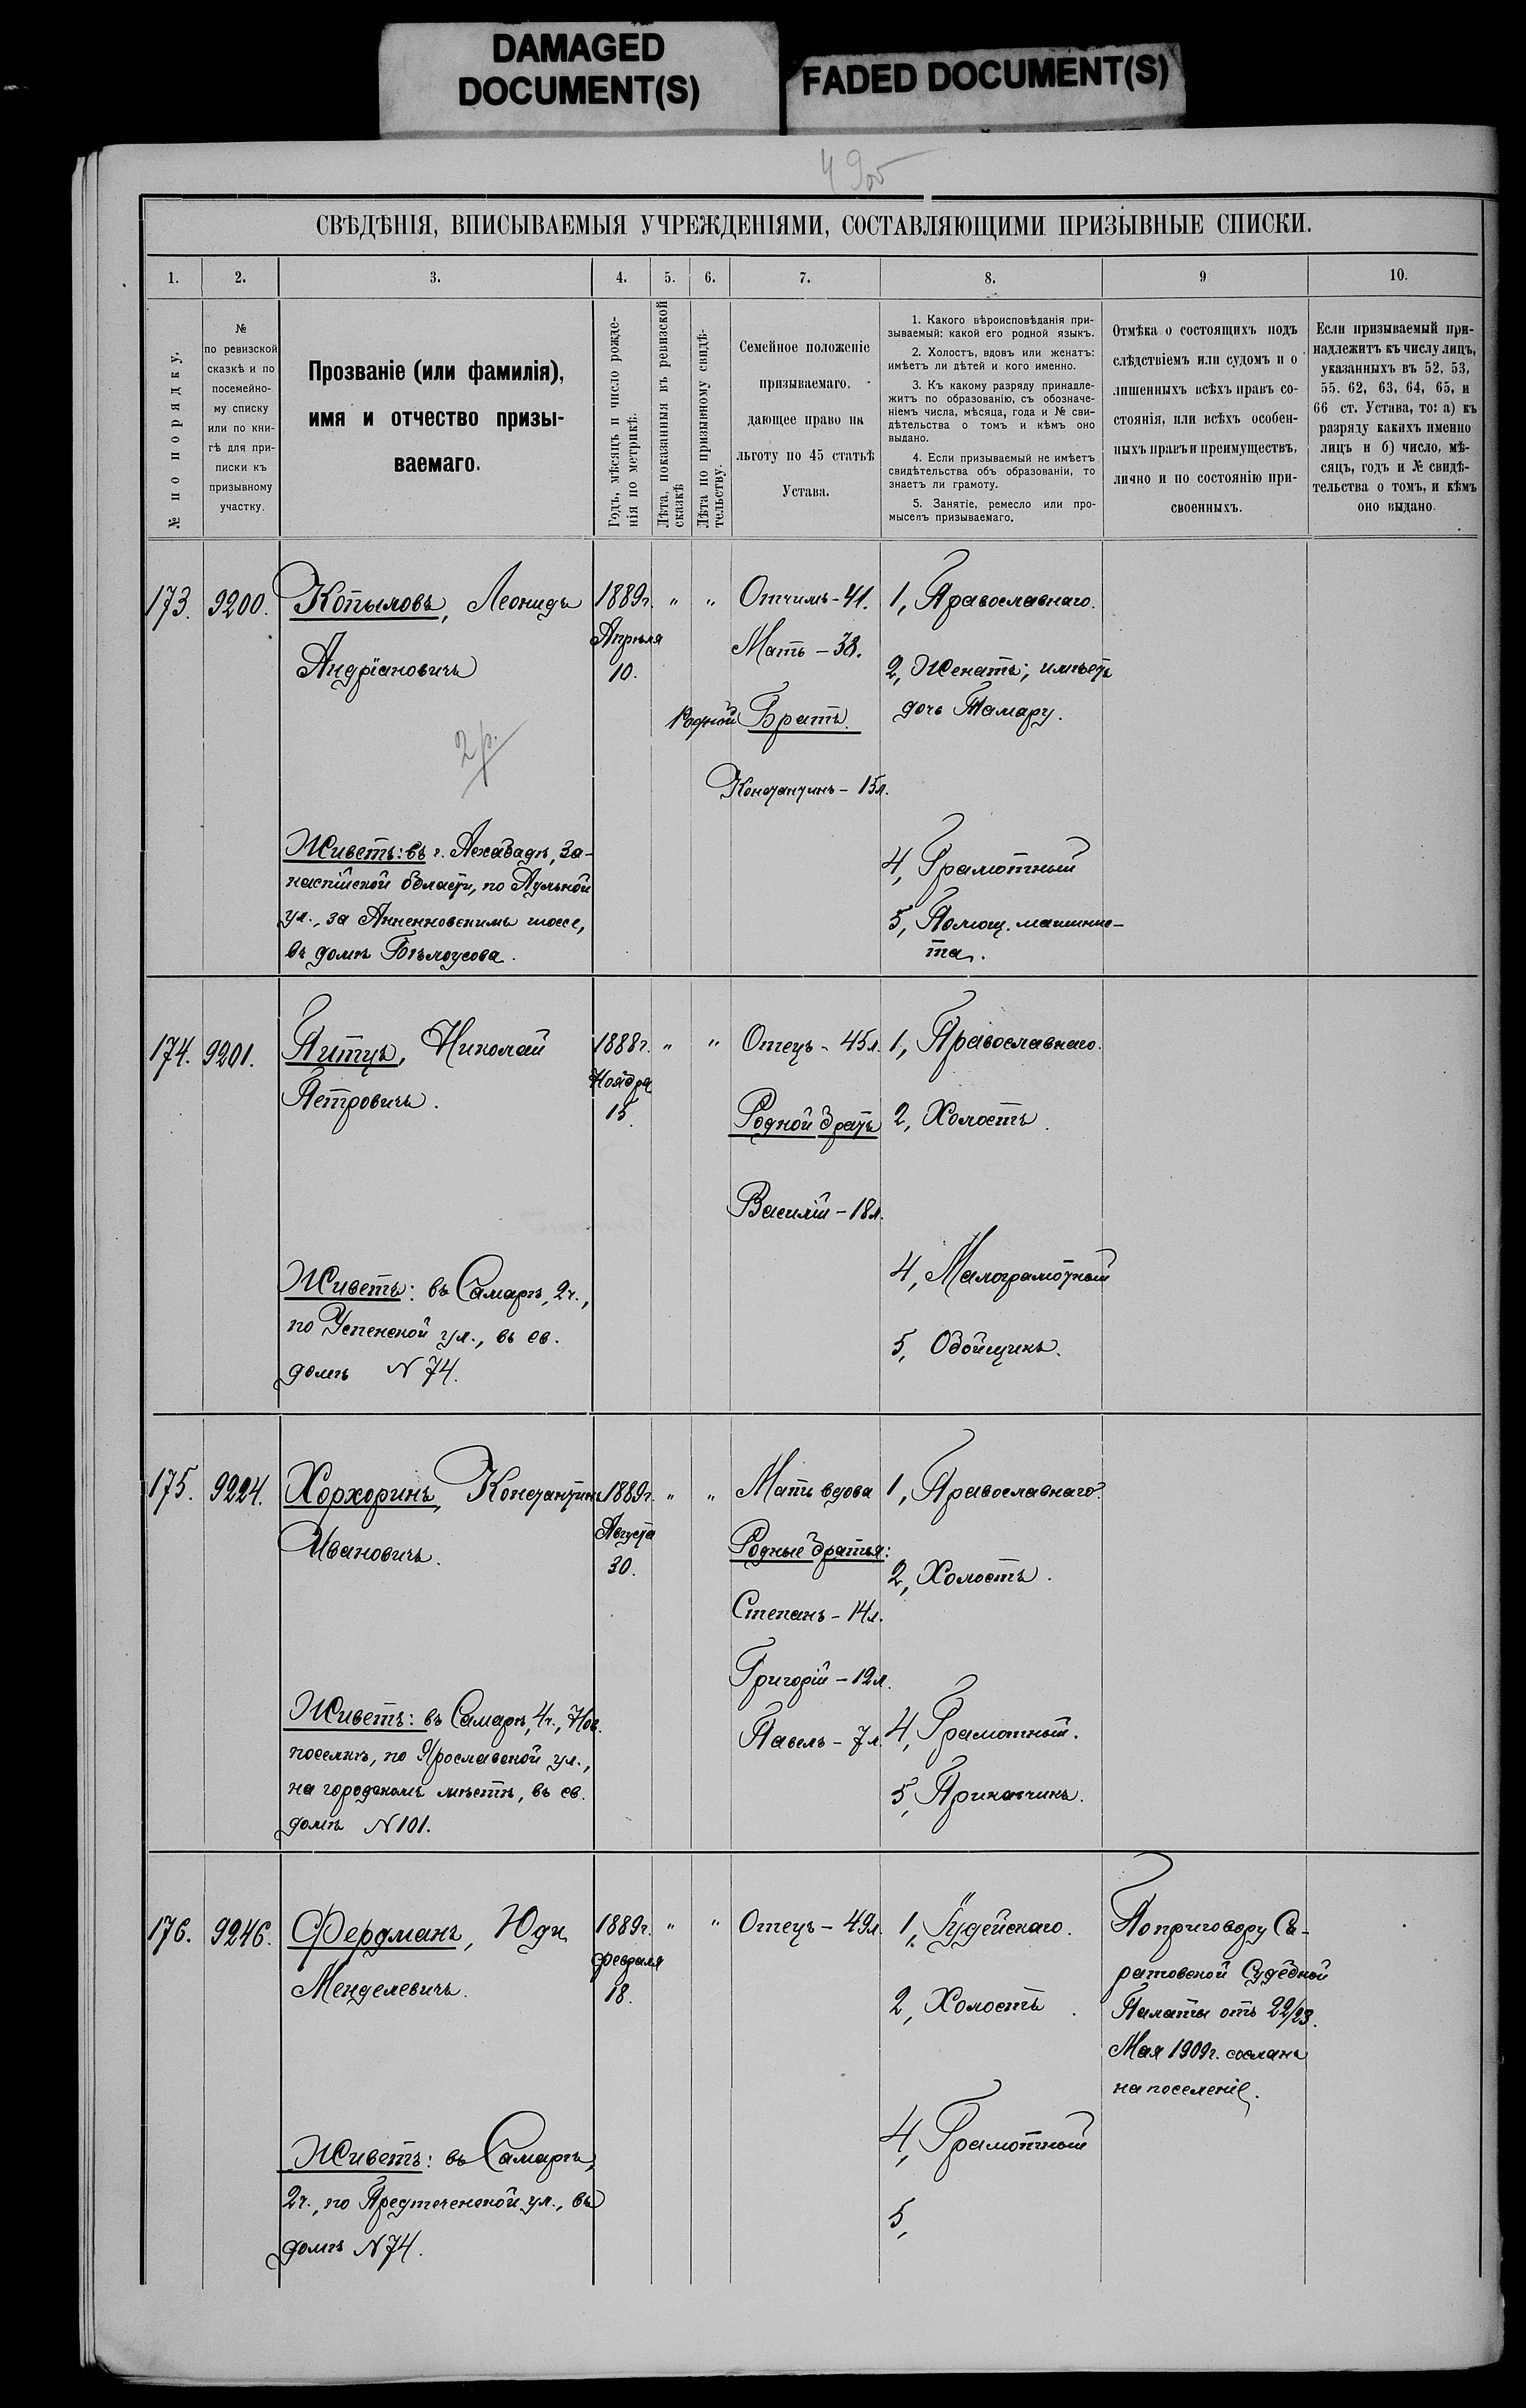 DAMAGED
DOCUMENT(S)
FADED DOCUMENT(S)
49об
СВѢДѢНІЯ, ВПИСЫВАЕМЫЯ УЧРЕЖДЕНІЯМИ, СОСТАВЛЯЮЩИМИ ПРИЗЫВНЫЕ СПИСКИ.
1.
2.
3.
4.
5.
6.
7.
8.
9
10.
№ по порядку.
№
по ревизской
сказкѣ и по
посемейно-
му списку
или по кни-
гѣ для при-
писки къ
призывному
участку.
Прозваніе (или фамилія),
имя и отчество призы-
ваемаго.
Годъ, мѣсяцъ и число рожде-
нія по метрикѣ.
Лѣта, показанныя въ ревизской
сказкѣ
Лѣта по призывному свидѣ-
тельству.
Семейное положеніе
призываемаго,
дающее право на
льготу по 45 статьѣ
Устава.
1. Какого вѣроисповѣданія при-
зываемый: какой его родной языкъ.
2. Холостъ, вдовъ или женатъ:
имѣетъ ли дѣтей и кого именно.
3. Къ какому разряду принадле-
житъ по образованію, съ обозначе-
ніемъ числа, мѣсяца, года и № сви-
дѣтельства о томъ и кѣмъ оно
выдано.
4. Если призываемый не имѣетъ
свидѣтельства объ образованіи, то
знаетъ ли грамоту.
5. Занятіе, ремесло или про-
мыселъ призываемаго.
Отмѣка о состоящихъ подъ
слѣдствіемъ или судомъ и о
лишенныхъ всѣхъ правъ со-
стоянія, или всѣхъ особен-
ныхъ правъ и преимуществъ,
лично и по состоянію при-
своенныхъ.
Если призываемый при-
надлежитъ къ числу лицъ,
указанныхъ въ 52, 53,
55. 62, 63, 64, 65, и
66 ст. Устава, то: а) къ
разряду какихъ именно
лицъ и б) число, мѣ-
сяцъ, годъ и № свидѣ-
тельства о томъ, и кѣмъ
оно выдано.
173.
9200.
Копыловъ, Леонидъ
Андріановичъ
2р.
Живетъ: въ г. Асхабадѣ, За-
каспійской области, по Аульной
ул., за Анненковскимъ шоссе,
въ домѣ Бѣлоусова.
1889г.
Апрѣля
10.
" "
Отчимъ - 41.
Мать - 38.
Родной Братъ
Константинъ - 15л.
1, Православнаго.
2, Женатъ; имѣетъ
дочь Тамару.
4, Грамотный
5, Помощ. машинис-
та.
174.
9201.
Питцъ, Николай
Петровичъ.
Живетъ: въ Самарѣ, 2ч.,
по Успенской ул., въ св.
домѣ N 74.
1888г.
Ноября
15.
" "
Отецъ - 45л.
Родной братъ
Василій - 18л.
1, Православнаго.
2, Холостъ.
4, Малограмотный
5, Обойщикъ.
175.
9224.
Хорхоринъ, Константинъ
Ивановичъ.
Живетъ: въ Самарѣ, 4ч., Нов.
поселкѣ, по Ярославской ул.,
на городскомъ мѣстѣ, въ св.
домѣ N 101.
1889г.
Августа
30.
" "
Мать вдова
Родные братья:
Степанъ - 14л.
Григорій - 12л.
Павелъ - 7л.
1, Православнаго.
2, Холостъ.
4, Грамотный.
5, Приказчикъ.
176.
9246.
Фердманъ, Юди
Менделевичъ.
Живетъ: въ Самарѣ,
2ч., по Предтеченской ул., въ
домѣ N 74.
1889г.
Февраля
18.
" "
Отецъ - 49л.
1, Іудейскаго.
2, Холостъ.
4, Грамотный
5,
По приговору Са-
ратовской Судебной
Палаты отъ 22/23.
Мая 1909г. сосланъ
на поселеніе.